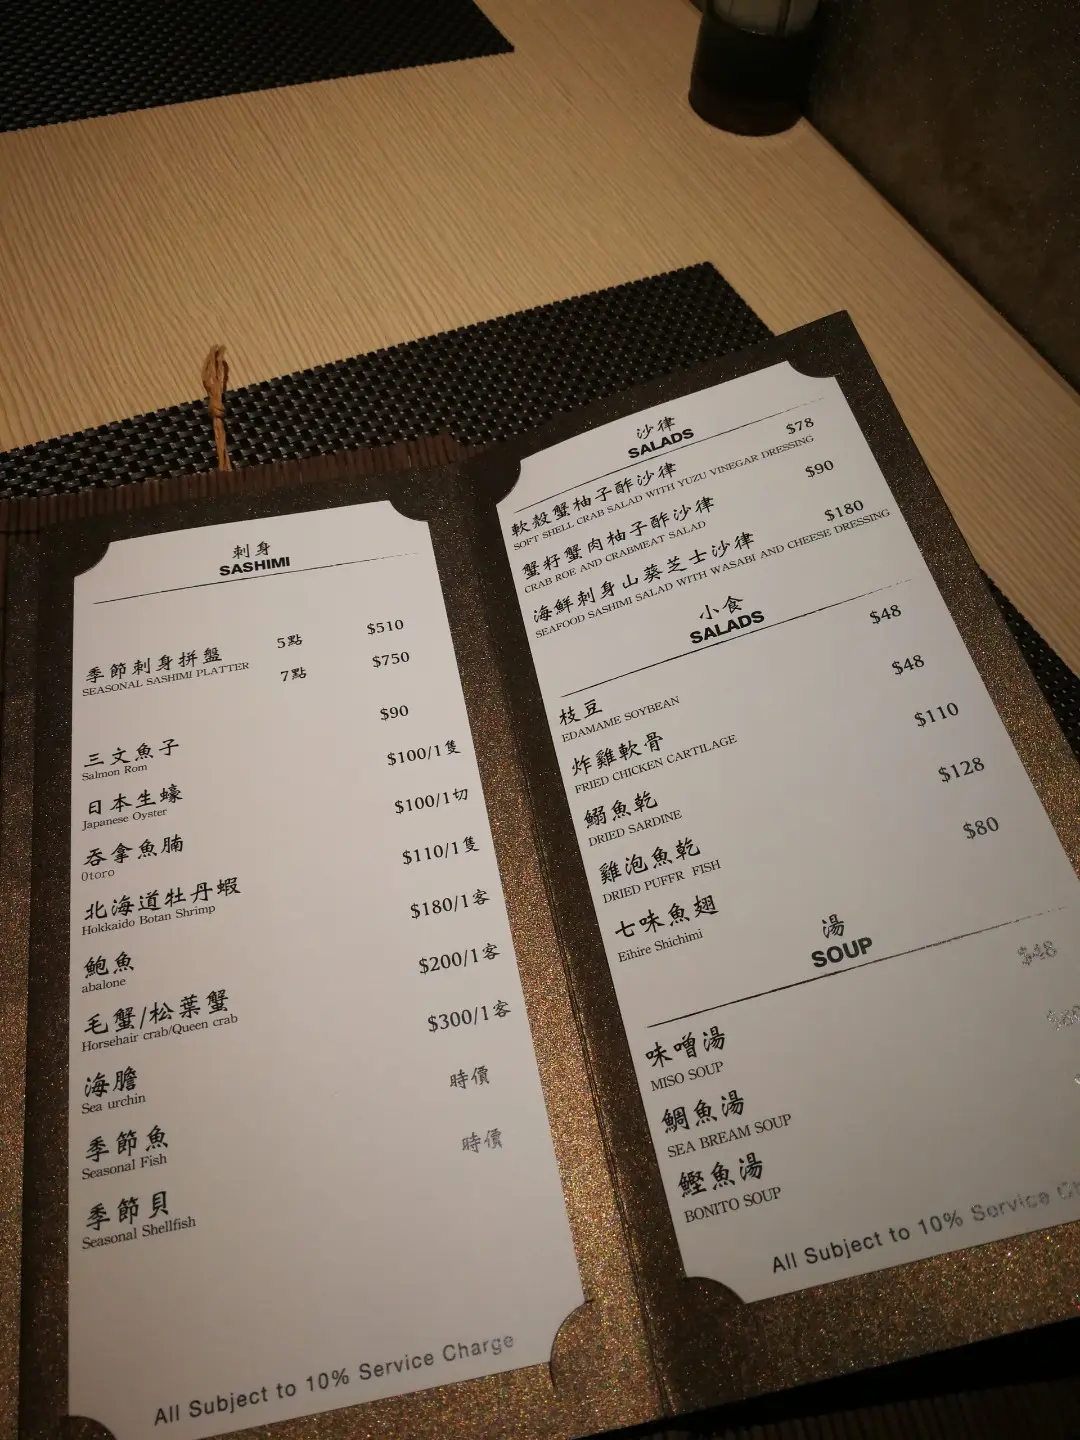 刺身
SASHIMI
季節刺身拼盤 5點 $510
SEASONAL SASHIMI PLATTER 7點 $750
三文魚子 $90
Salmon Rom
日本生蠔 $100/1隻
Japanese Oyster
吞拿魚腩 $100/1切
Otoro
北海道牡丹蝦 $110/1隻
Hokkaido Botan Shrimp
鮑魚 $180/1客
abalone
毛蟹/松葉蟹 $200/1客
Horsehair crab/Queen crab
海膽 $300/1客
Sea urchin
季節魚 時價
Seasonal Fish
季節貝 時價
Seasonal Shellfish
All Subject to 10% Service Charge
沙律
SALADS
軟殼蟹柚子酢沙律 $78
SOFT SHELL CRAB SALAD WITH YUZU VINEGAR DRESSING
蟹籽蟹肉柚子酢沙律 $90
CRAB ROE AND CRABMEAT SALAD
海鮮刺身山葵芝士沙律 $180
SEAFOOD SASHIMI SALAD WITH WASABI AND CHEESE DRESSING
小食
SALADS
枝豆 $48
EDAMAME SOYBEAN
炸雞軟骨 $48
FRIED CHICKEN CARTILAGE
鰯魚乾 $110
DRIED SARDINE
雞泡魚乾 $128
DRIED PUFFR FISH
七味魚翅 $80
Eihire Shichimi
湯
SOUP
味噌湯 $48
MISO SOUP
鯛魚湯
SEA BREAM SOUP
鰹魚湯
BONITO SOUP
All Subject to 10% Service